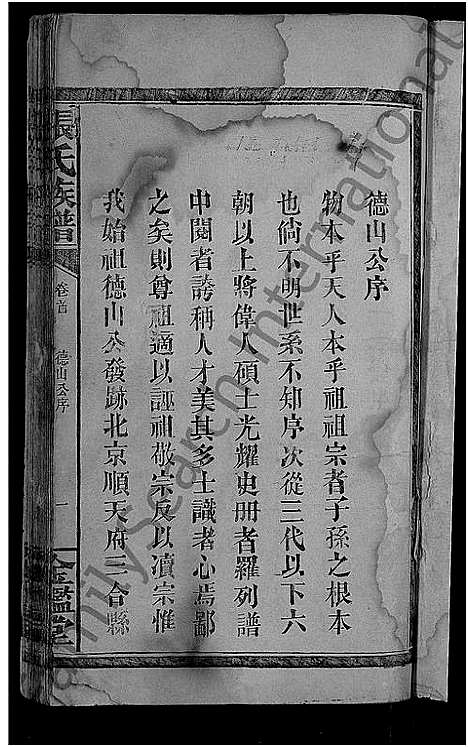 德山公序
物本乎天人本乎祖祖宗者子孫之根本
也倘不明世系不知序次從三代以下六
朝以上將偉人碩士光耀史冊者羅列譜
中閱者誇稱人才美其多士識者心焉鄙
之矣則尊祖適以誣祖敬宗反以瀆宗惟
我始祖德山公發跡北京順天府三合縣
張氏族譜
卷首 德山公序 一
金鑑堂
FamilySearch International